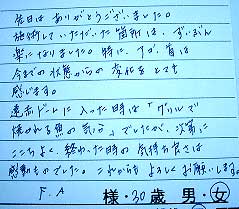 先日は ありがとうございました。
施術していただいた箇所は、ずいぶん
楽になりました。特に、ワキ、首は
今までの状態からの変化をとても
感じます。
遠赤ドームに入った時は「グリルで
焼かれる魚の気分」でしたが、次第に
ここちよく、終わった時の気持ち良さは
感動ものでした。これからも よろしくお願いします。
F.A 様・30歳 男・女